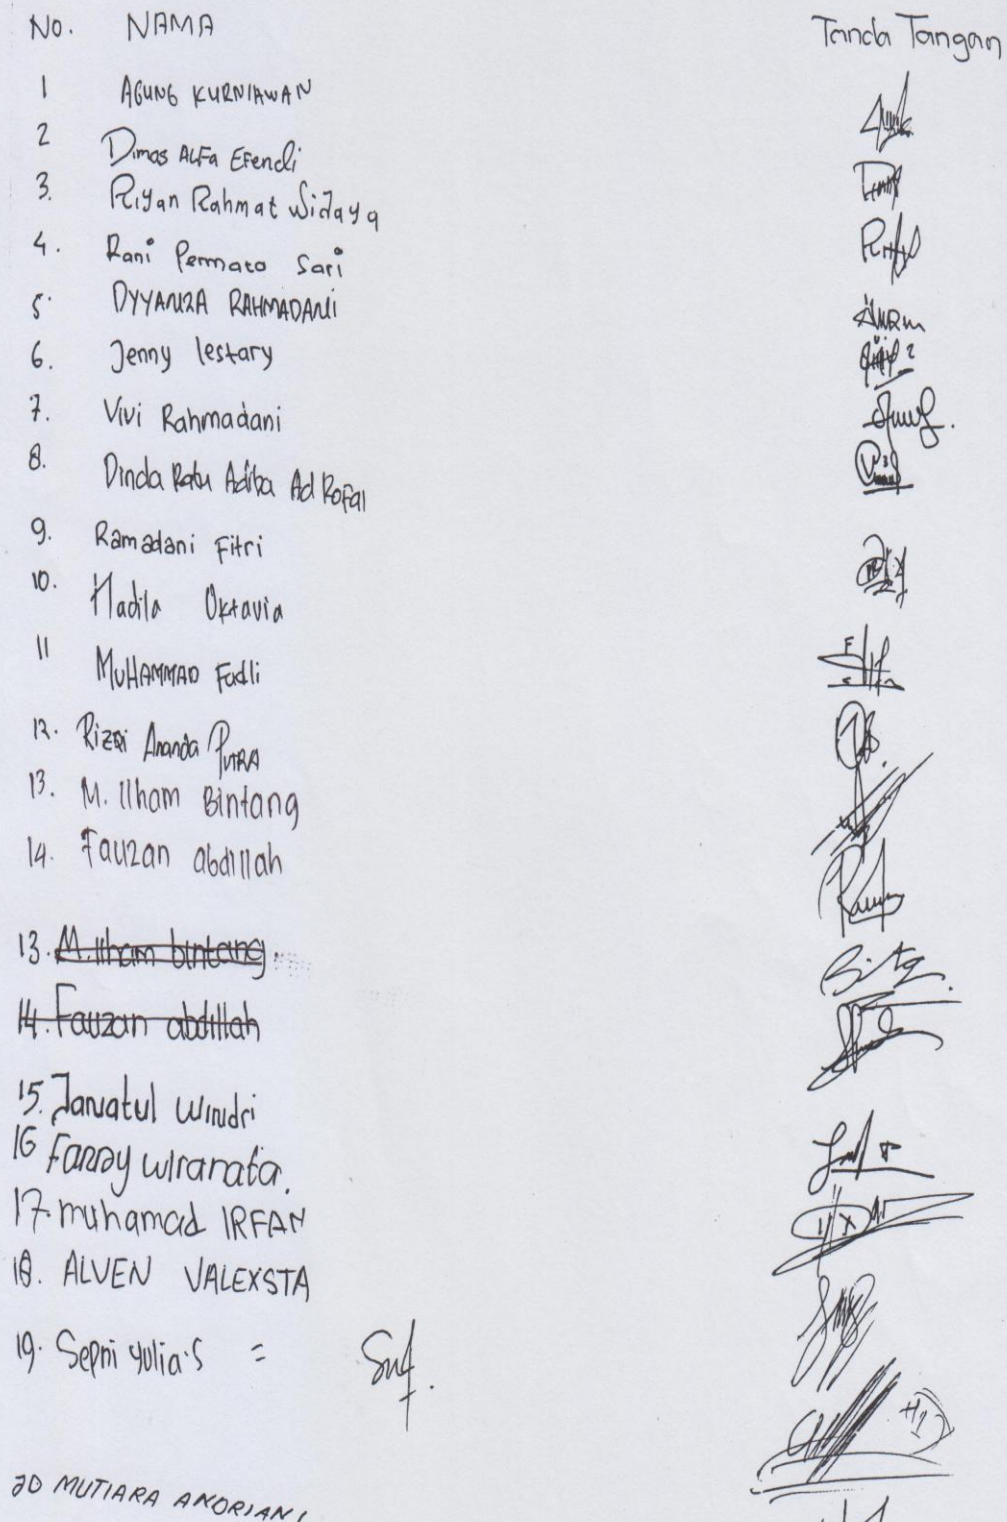 No. NAMA Tanda Tangan
1 AGUNG KURNIAWAN
2 Dimas ALFa EFendi
3. Riyan Rahmat Widaya
4. Rani Permata Sari
5. DYYANIZA RAHMADANI
6. Jenny lestary
7. Vivi Rahmadani
8. Dinda Ratu Adiba Ad Rofai
9. Ramadani Fitri
10. Nadila Oktavia
11 MUHAMMAD Fadli
12. Rizqi Ananda PUTRA
13. M. Ilham Bintang
14. Fauzan abdillah
13. M. Ilham bintang.
14. Fauzan abdillah
15. Janatul Windri
16 Fanny wiranata.
17. muhamad IRFAN
18. ALVEN VALEXSTA
19. Sepni yulia.S =
20 MUTIARA ANDRIANI